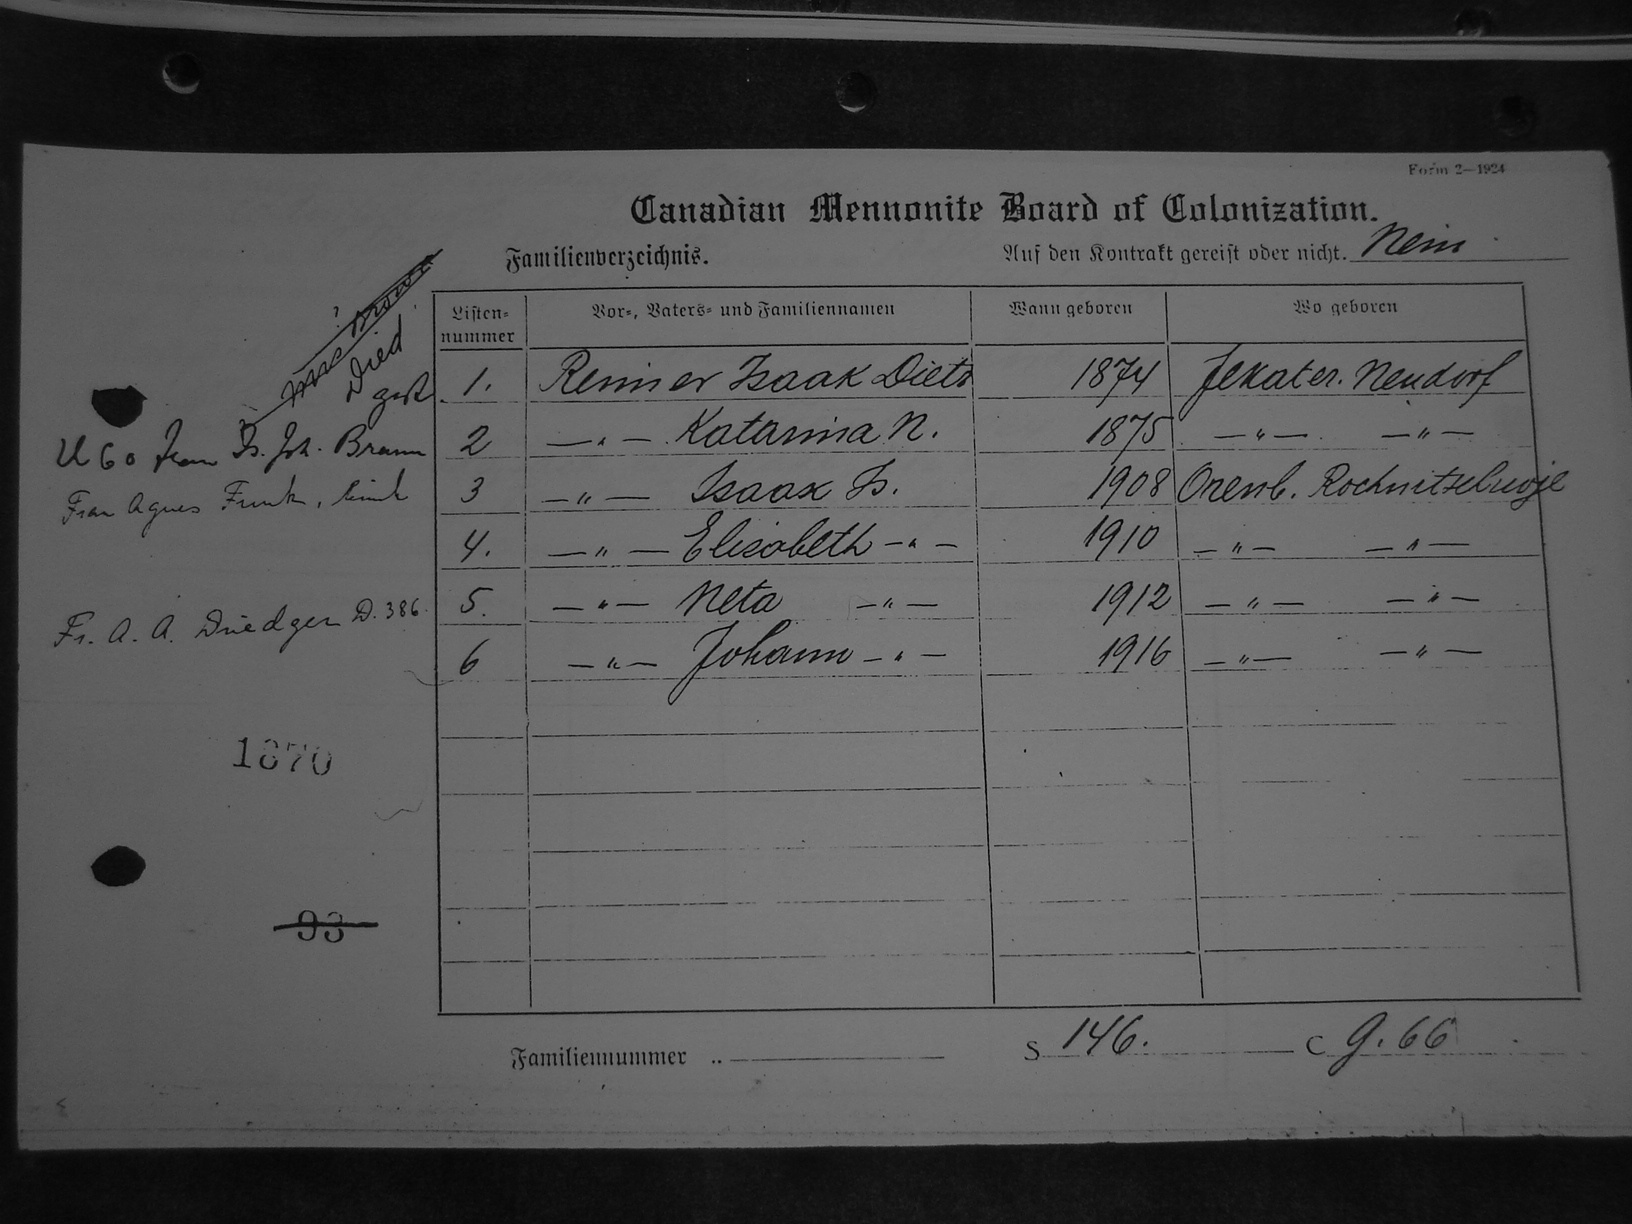 Form 2—1924
Canadian Mennonite Board of Colonization.
Familienverzeichnis. Auf den Kontrakt gereist oder nicht. Nein
Listen-nummer Vor-, Vaters- und Familiennamen Wann geboren Wo geboren
Died
1. Reimer Isaak Dietr 1874 Jekater. Neudorf
U 60 Frau Is. Joh. Braun
2 —"— Katarina N. 1875 —"— —"—
3 —"— Isaak Is. 1908 Orenb.
Frau Agnes Funk,
4. —"— Elisabeth —"— 1910 —"— —"—
5. —"— Neta —"— 1912 —"— —"—
Fr. A. A. Driedger D. 386
6 —"— Johann —"— 1916 —"— —"—
1870
93
Familiennummer .. S 146. C g. 66